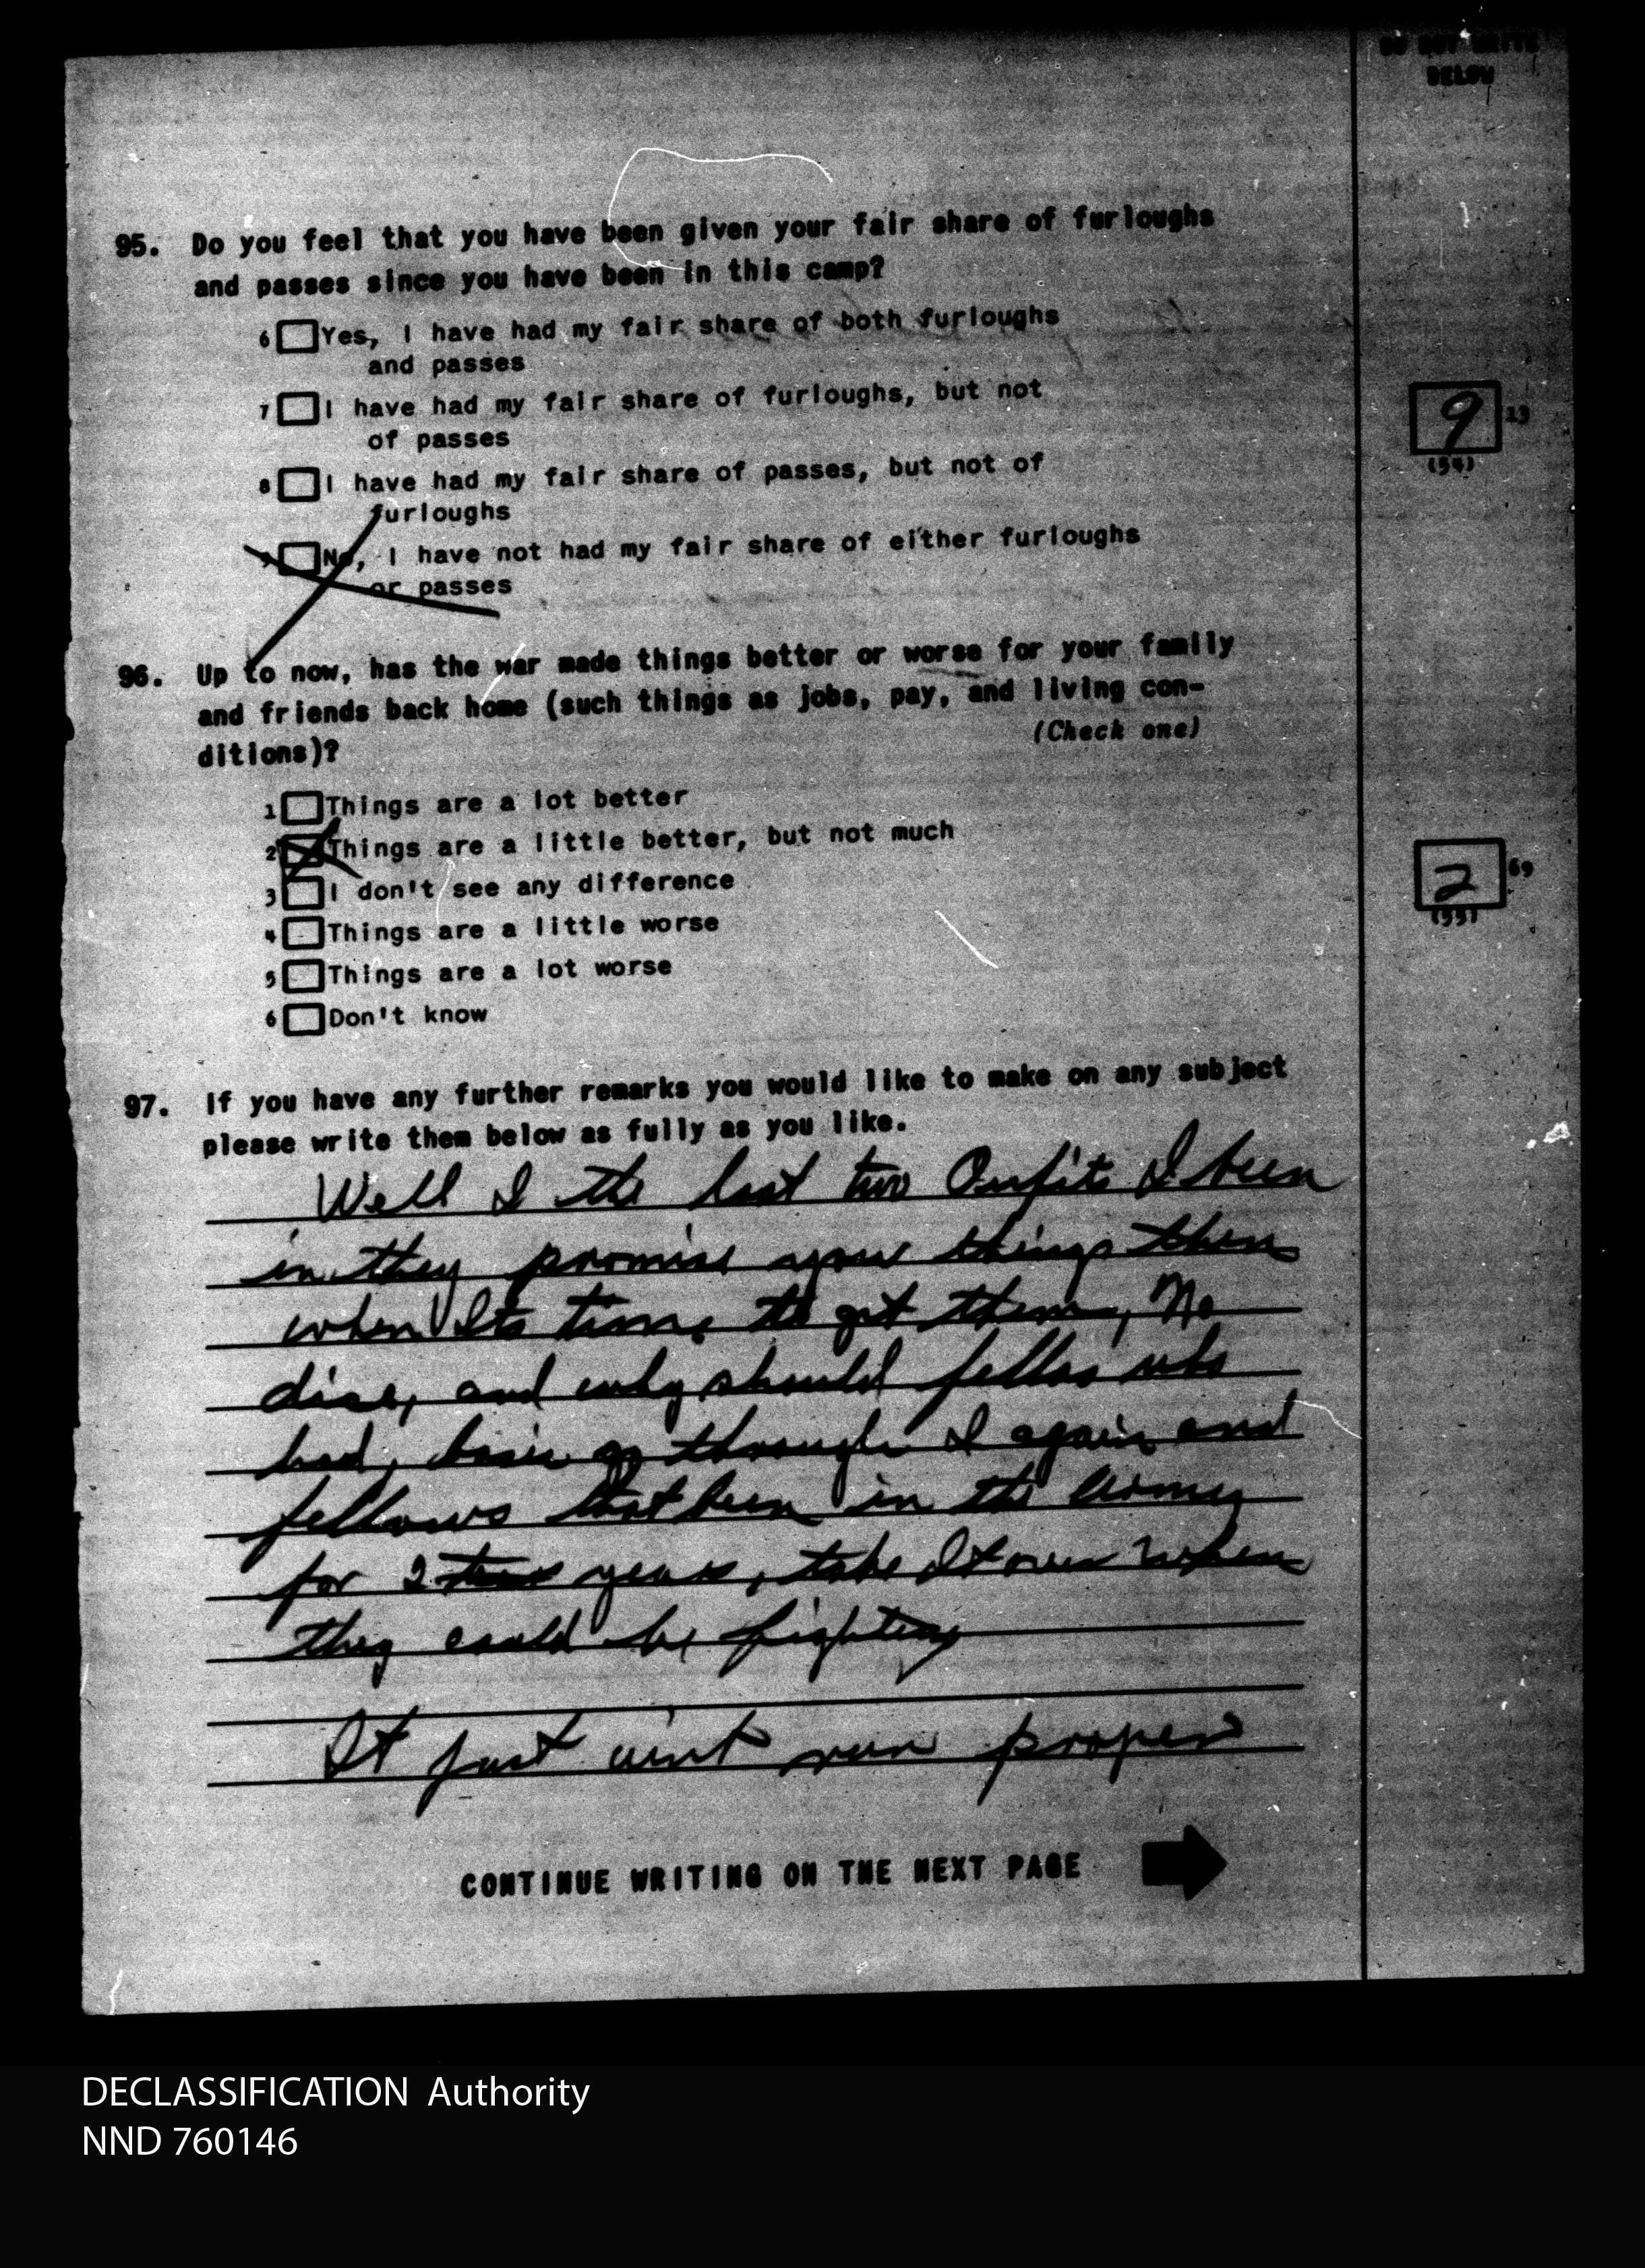 DO NOT WRITE
BELOW
95. Do you feel that you have been given your fair share of furloughs
and passes since you have been in this camp?
6 Yes, I have had my fair share of both furloughs
and passes
7 I have had my fair share of furloughs, but not
of passes
8 I have had my fair share of passes, but not of
furloughs
9 No, I have not had my fair share of either furloughs
or passes
9 13
(54)
96. Up to now, has the war made things better or worse for your family
and friends back home (such things as jobs, pay, and living con-
ditions)?
(Check one)
1 Things are a lot better
2 Things are a little better, but not much
3 I don't see any difference
4 Things are a little worse
5 Things are a lot worse
6 Don't know
2 69
(55)
97. If you have any further remarks you would like to make on any subject
please write them below as fully as you like.
Well I the last two Oufits I been
in they promise you things then
when Its time to get them, No
dise, and why should fellos who
had, basic go through I again and
fellows that been in the Army
for 2 years, take It over when
they could be fighting
It just aint run proper
CONTINUE WRITING ON THE NEXT PAGE
DECLASSIFICATION Authority
NND 760146